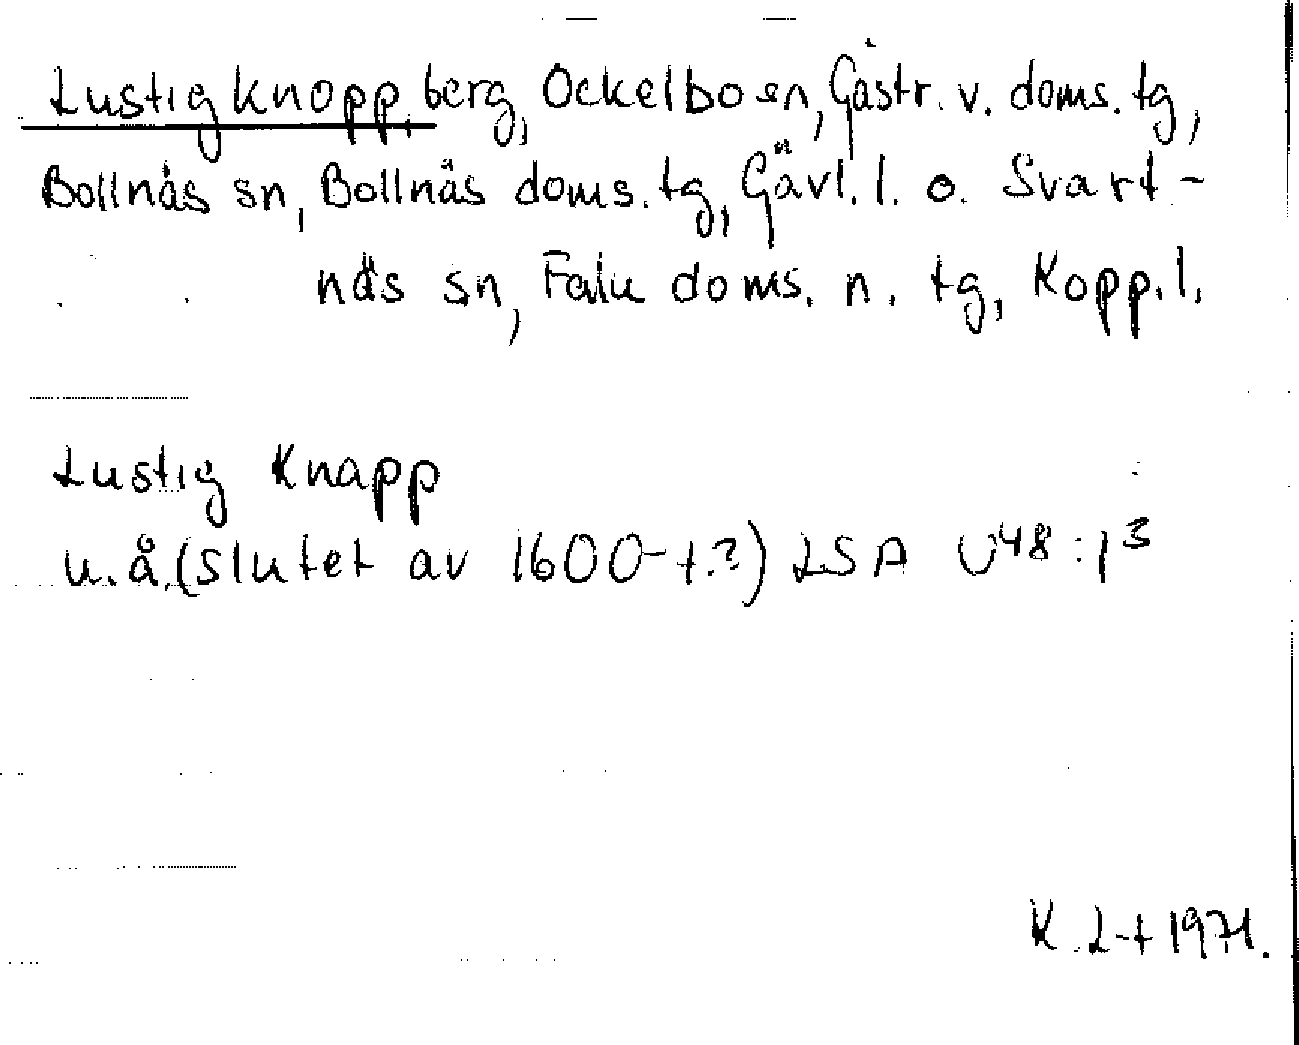 Lustigknopp, berg, Ockelbo sn, Gästr. v. doms. tg,
Bollnäs sn, Bollnäs doms. tg, Gävl. l. o. Svart-
näs sn, Falu doms. n. tg, Kopp. l.
Lustig Knapp
u.å. (slutet av 1600-t.?) LSA U48:1³
K. L-t 1971.